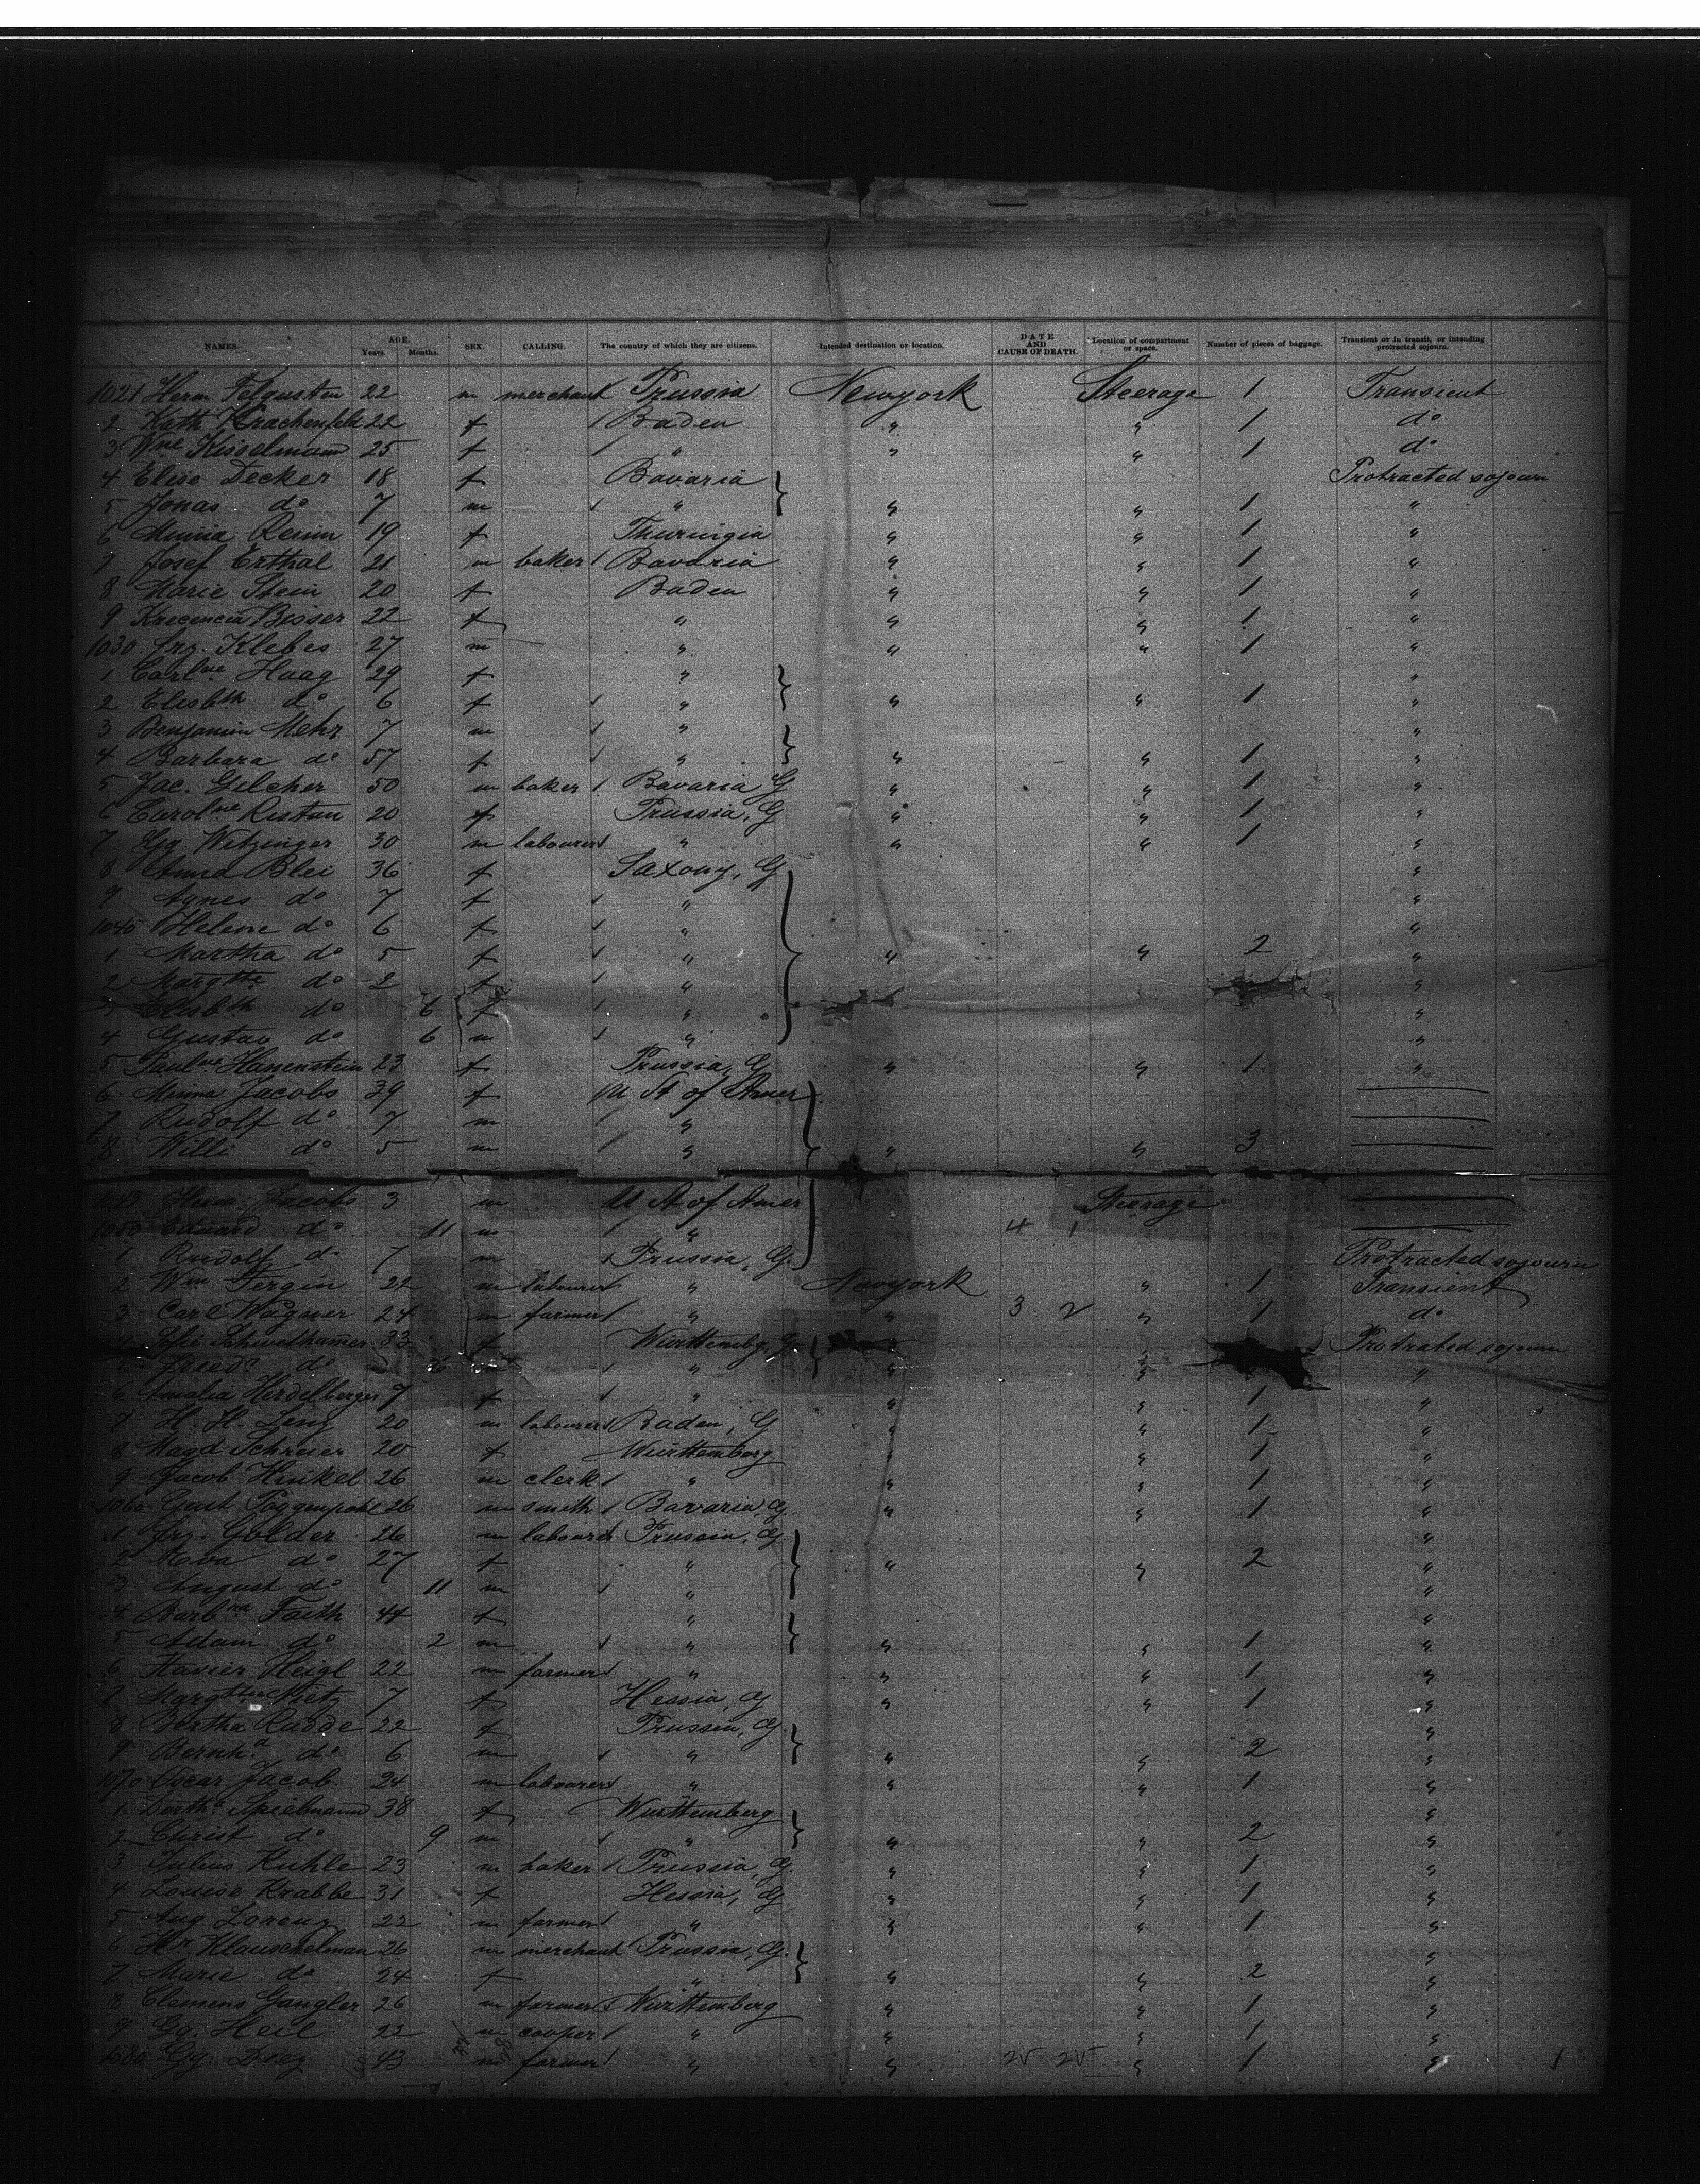 NAMES. AGE. Years. Months. SEX. CALLING. The country of which they are citizens. Intended destination or location. DATE AND CAUSE OF DEATH. Location of compartment or space. Number of pieces of baggage. Transient or in transit, or intending protracted sojourn.
1021 Herm. 22 m merchant Prussia Newyork Steerage 1 Transient
2 Kath 22 f Baden " " 1 do
3 Wne Kisselmann 25 f " " " 1 do
4 Elise Decker 18 f Bavaria Protracted sojourn
5 Jonas do 7 m " " " 1 "
6 19 f " " 1 "
7 Josef Erthal 21 m baker Bavaria " " 1 "
8 Marie Stein 20 f Baden " " 1 "
9 Bisser 22 f " " " 1 "
1030 Frz. Klebes 27 m " " " 1 "
1 Carlne Haag 29 f " "
2 Elisbth do 6 f " " " 1 "
3 Benjamin Mehr 7 m " "
4 Barbara do 57 f " " " 1 "
5 Jac. Gilcher 50 m baker Bavaria G " " 1 "
6 Carolne Ristau 20 f Prussia, G " " 1 "
7 Gg. Witzinger 30 m labourer " " " 1 "
8 Anna Blei 36 f Saxony, G "
9 Agnes do 7 f " "
1040 Helene do 6 f " "
1 Martha do 5 f " " " 2 "
2 Margthe do 2 f " "
3 Elisbth do 6 f " "
4 Gustav do 6 m " "
5 Paulne Hanenstein 23 f Prussia, G " " 1 "
6 Minna Jacobs 39 f U St of Amer
7 Rudolf do 7 m "
8 Willi do 5 m " " " 3
1049 Herm. Jacobs 3 m U St of Amer Steerage
1050 Eduard do 11 m " 4 1
1 Rudolf do 7 m Prussia, G. Protracted sojourn
2 Wm Fergin 22 m labourer " Newyork " 1 Transient
3 Carl Wagner 24 m farmer " " 3 2 " 1 do
4 Sofie 33 f Württembg. G. " " Protrated sojourn
5 do 6 " " " "
6 Amalia Herdelberger 7 f " " " 1 "
7 H. H. Leng 20 m labourer Baden, G " " 1 "
8 Magd Schreier 20 f Württemberg " " 1 "
9 Jacob Hinkel 26 m clerk " " " 1 "
1060 Gust Poggenpohl 26 m smith Bavaria, G " " 1 "
1 Frz. Golder 26 m labourer Prussia, G "
2 Rosa do 27 f " " " 2 "
3 August do 11 m " "
4 Barbra Faith 44 f " "
5 Adam do 2 m " " " 1 "
6 Xavier Heigl 22 m farmer " " " 1 "
7 Margthe Nietz 7 f Hessia, G " " 1 "
8 Bertha Radde 22 f Prussia, G "
9 Bernhd do 6 m " " " 2 "
1070 Oscar Jacob. 24 m labourer " " " 1 "
1 Dortha Spielmann 38 f Württemberg "
2 Christ do 9 m " " " 2 "
3 Julius Kuhle 23 m baker Prussia, G " " 1 "
4 Louise Krabbe 31 f Hessia, G " " 1 "
5 Aug Lorenz 22 m farmer " " " 1 "
6 Hr Klauschelman 26 m merchant Prussia, G. "
7 Marie do 24 f " " " 2 "
8 Clemens Gangler 26 m farmer Württemberg " " 1 "
9 Gg. Heil 22 m cooper " " " 1 "
1080 Gg. Diez 43 m farmer " " 25 25 " 1 "